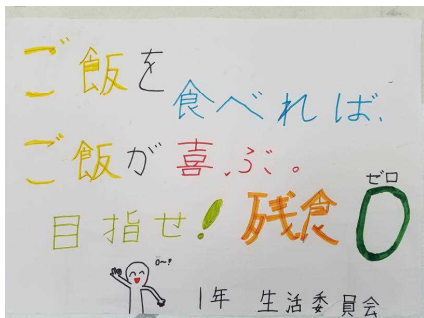 ご飯を
食べれば、
ご飯が喜ぶ。
ゼロ
目指せ!残食0
お〜!
1年 生活委員会